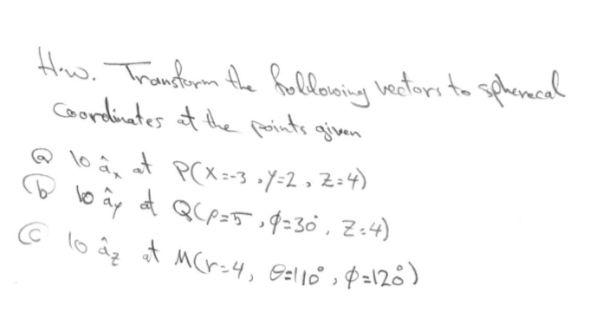 H.w. Transform the following vectors to spherecal
Coordinates at the points given
ⓐ 10 âₓ at P(X=-3, y=2, Z=4)
ⓑ 10 ây at Q(ρ=5, φ=30°, Z=4)
ⓒ 10 âz at M(r=4, θ=110°, φ=120°)